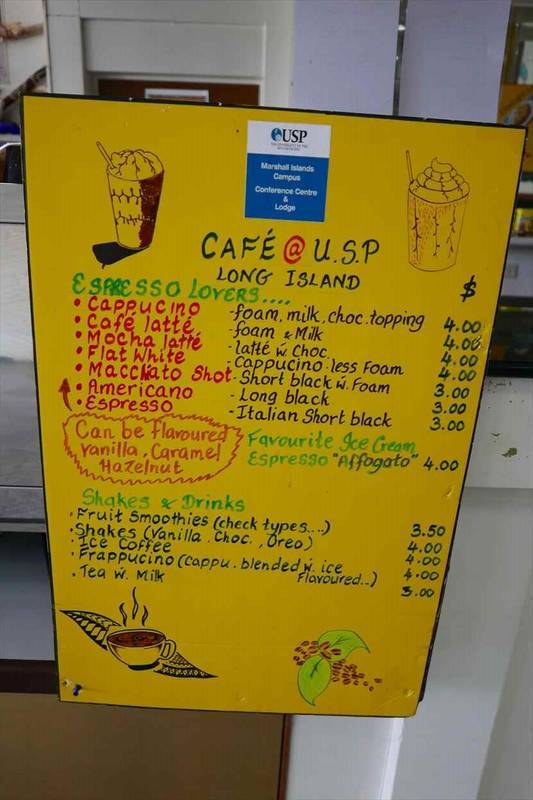 USP
THE UNIVERSITY OF THE
SOUTH PACIFIC
Marshall Islands
Campus
Conference Centre
&
Lodge
CAFÉ @ U.S.P
LONG ISLAND
ESPRESSO LOVERS.... $
• Cappucino - foam, milk, choc. topping 4.00
• Café latté - foam & Milk 4.00
• Mocha latté - latté w. Choc 4.00
• Flat White - Cappucino less Foam 4.00
• Macchato Shot - Short black w. Foam 3.00
• Americano - Long black 3.00
• Espresso - Italian Short black 3.00
Can be flavoured
Vanilla, Caramel
Hazelnut
Favourite Ice Cream
Espresso "Affogato" 4.00
Shakes & Drinks
• Fruit Smoothies (check types...) 3.50
• Shakes (Vanilla. Choc., Oreo) 4.00
• Ice Coffee 4.00
• Frappucino (cappu. blended w. ice
Flavoured..) 4.00
• Tea w. Milk 3.00